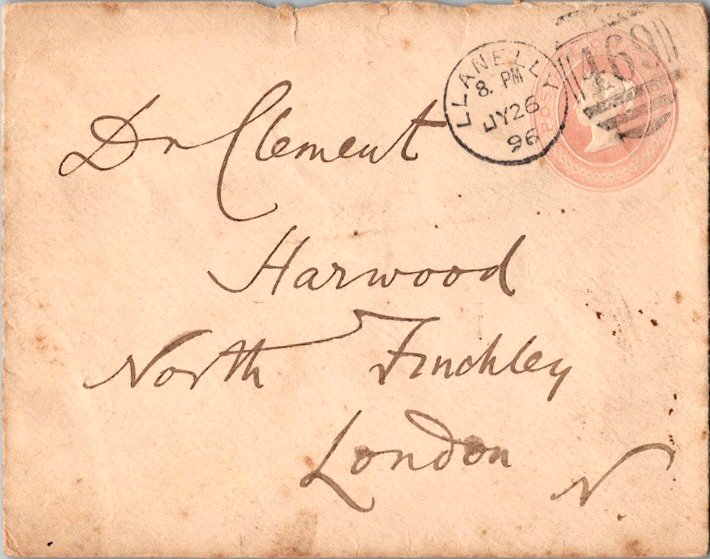 LLANELLY
8. PM
JY 26
96
469
Dr Clement
Harwood
North Finchley
London
N.